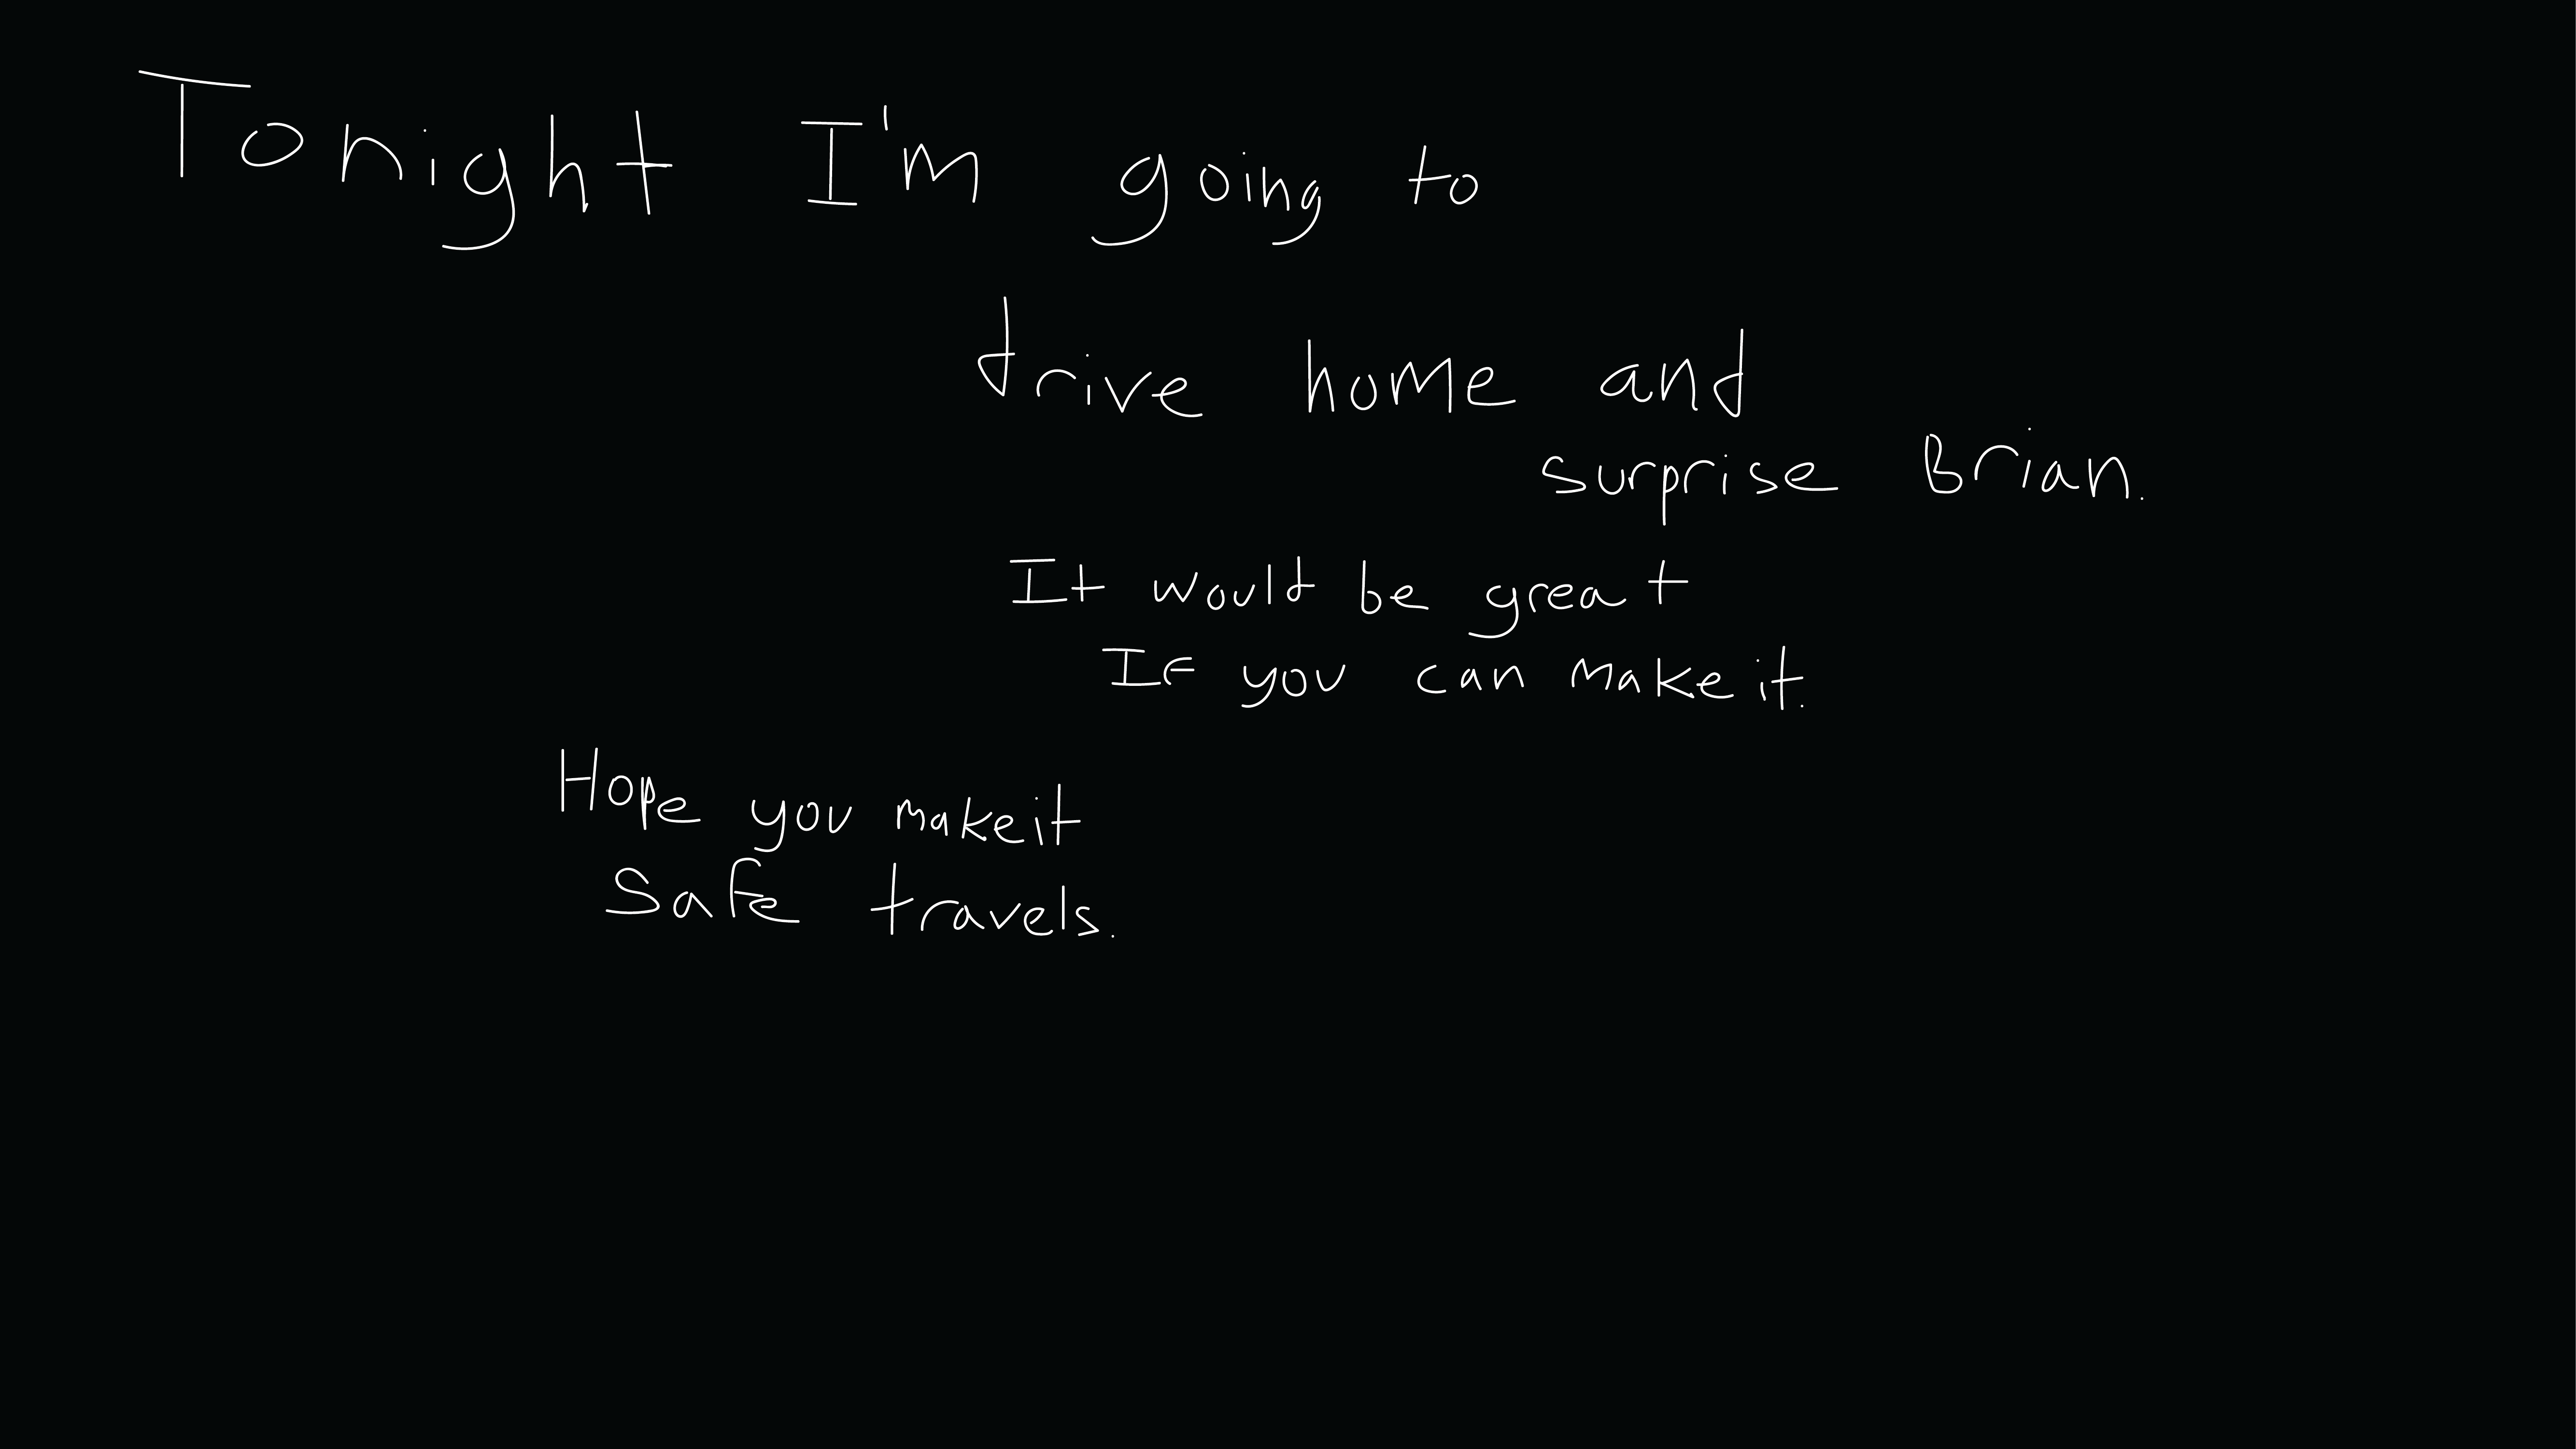 Tonight I'm going to
drive home and
surprise Brian.
It would be great
If you can make it.
Hope you make it
Safe travels.